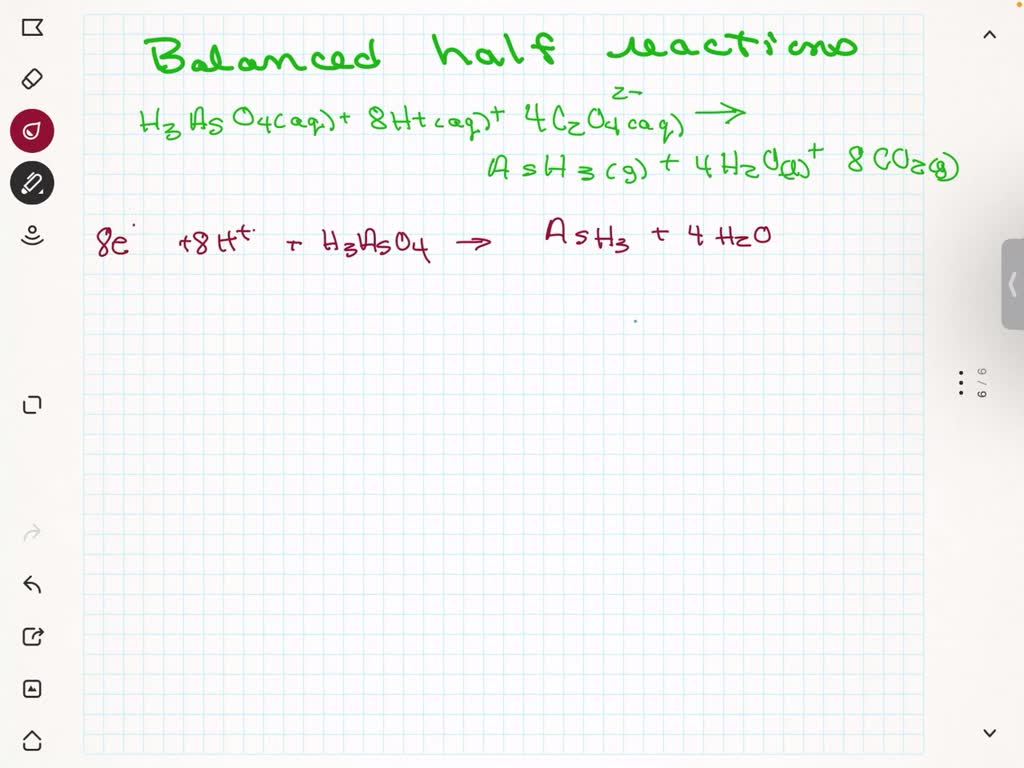 Balanced half reactions
H3AsO4(aq) + 8H+(aq) + 4C2O4 2-(aq) →
AsH3(g) + 4H2O(l) + 8CO2(g)
8e- +8H+ + H3AsO4 → AsH3 + 4H2O
9 / 9